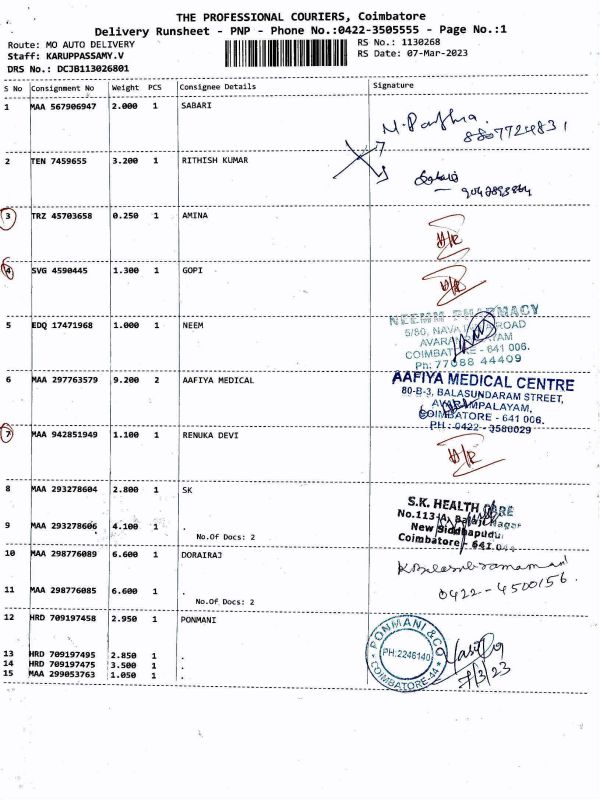 THE PROFESSIONAL COURIERS, Coimbatore
Delivery Runsheet - PNP - Phone No.:0422-3505555 - Page No.:1
Route: MO AUTO DELIVERY
RS No.: 1130268
Staff: KARUPPASSAMY.V
RS Date: 07-Mar-2023
DRS No.: DCJB113026801
S No Consignment No Weight PCS Consignee Details Signature
1 MAA 567906947 2.000 1 SABARI
8807724831
2 TEN 7459655 3.200 1 RITHISH KUMAR
3 TRZ 45703658 0.250 1 AMINA
4 SVG 4590445 1.300 1 GOPI
5 EDQ 17471968 1.000 1 NEEM
NEEMM PHARMACY
5/80, ROAD
COIMBATORE - 641 006.
Ph: 77088 44409
6 MAA 297763579 9.200 2 AAFIYA MEDICAL
AAFIYA MEDICAL CENTRE
80-B-3, BALASUNDARAM STREET,
AVARAMPALAYAM,
COIMBATORE - 641 006.
PH : 0422 - 3580029
7 MAA 942851949 1.100 1 RENUKA DEVI
8 MAA 293278604 2.800 1 SK
S.K. HEALTH CARE
No.113-A, Balaji Nagar
New Siddhapudur
Coimbatore - 641 044
9 MAA 293278606 4.100 1 .
No.Of Docs: 2
10 MAA 298776089 6.600 1 DORAIRAJ
K. Balasubramaniam
0422-4500156.
11 MAA 298776085 6.600 1 .
No.Of Docs: 2
12 HRD 709197458 2.950 1 PONMANI
PONMANI & CO
PH:2246140
COIMBATORE-44
7/3/23
13 HRD 709197495 2.850 1 .
14 HRD 709197475 3.500 1 .
15 MAA 299053763 1.050 1 .